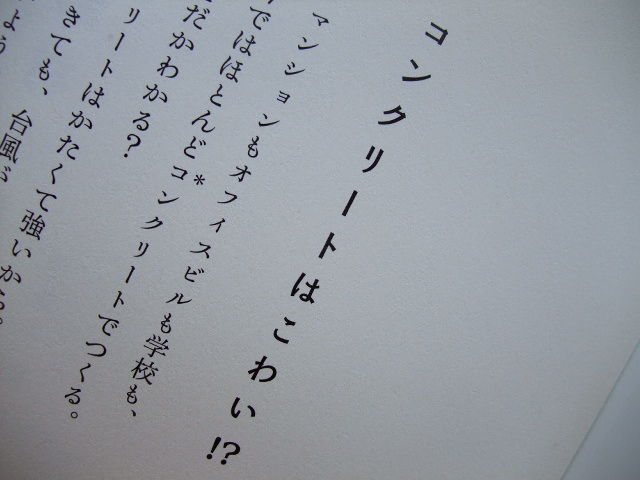 コンクリートはこわい!?
マンションもオフィスビルも学校も、
ではほとんど*コンクリートでつくる。
だかわかる?
リートはかたくて強いから。
きても、台風が
よう